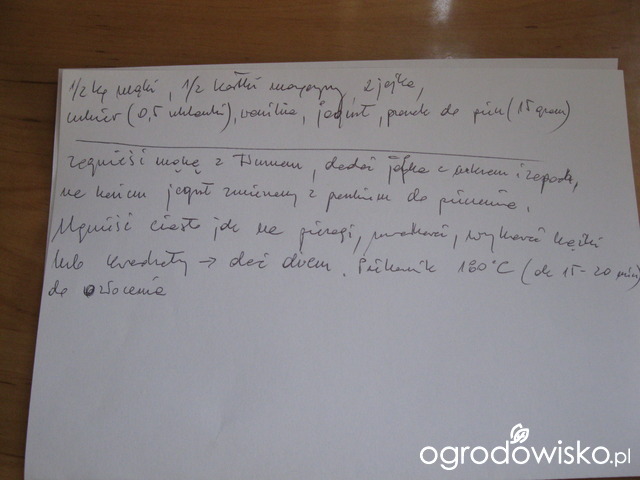 1/2 kg mąki, 1/2 kostki margaryny, 2 jajka,
cukier (0,5 szklanki), wanilia, jogurt, proszek do piecz (15 gram)
zagnieść mąkę z tłuszczem, dodać jajka z cukrem i zapach,
na końcu jogurt zmieszany z proszkiem do pieczenia.
Ugnieść ciasto jak na pierogi, wykrawać kółka
lub kwadraty → dać dżem. Piekarnik 180°C (ok 15-20 min)
do ozłocenia
ogrodowisko.pl